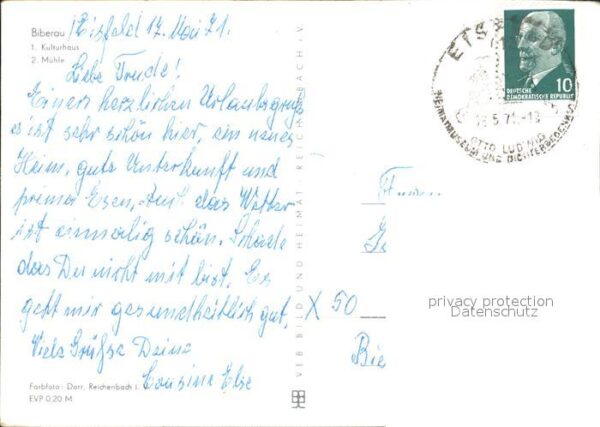 Biberau
1. Kulturhaus
2. Mühle
Eisfeld 17. Mai 71.
Liebe Trude!
Einen herzlichen Urlaubsgruß
es ist sehr schön hier, ein neues
Heim, gute Unterkunft und
prima Essen. das Wetter
ist einmalig schön. Schade
das Du nicht mit bist. Es
geht mir gesundheitlich gut.
Viele Grüße Deine
Cousine Else
Farbfoto: Darr, Reichenbach i.
EVP 0,20 M
VEB BILD UND HEIMAT REICHENBACH I. V.
EISFELD
18.5.71.-18
OTTO LUDWIG
HEIMATMUSEUM UND DICHTERGEDENK
10
DEUTSCHE
DEMOKRATISCHE REPUBLIK
X 50
Bie
privacy protection
Datenschutz